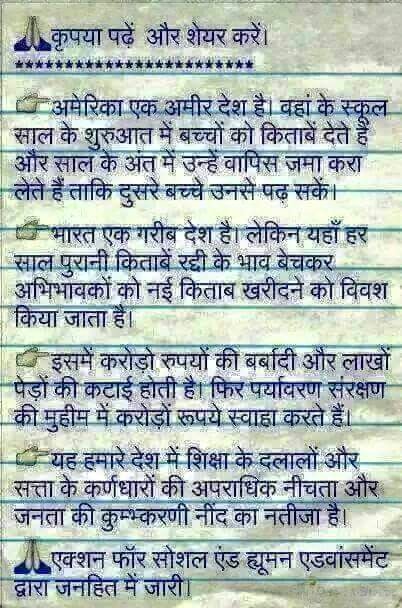 🙏कृपया पढ़ें और शेयर करें।
************************
👉अमेरिका एक अमीर देश है। वहां के स्कूल
साल के शुरुआत में बच्चों को किताबें देते हैं
और साल के अंत में उन्हें वापिस जमा करा
लेते हैं ताकि दुसरे बच्चे उनसे पढ़ सकें।
👉भारत एक गरीब देश है। लेकिन यहाँ हर
साल पुरानी किताबें रद्दी के भाव बेचकर
अभिभावकों को नई किताब खरीदने को विवश
किया जाता है।
👉इसमें करोड़ो रुपयों की बर्बादी और लाखों
पेड़ों की कटाई होती है। फिर पर्यावरण संरक्षण
की मुहीम में करोड़ों रूपये स्वाहा करते हैं।
👉यह हमारे देश में शिक्षा के दलालों और
सत्ता के कर्णधारों की अपराधिक नीचता और
जनता की कुम्भ्करणी नींद का नतीजा है।
🙏एक्शन फॉर सोशल एंड ह्यूमन एडवांसमेंट
द्वारा जनहित में जारी।